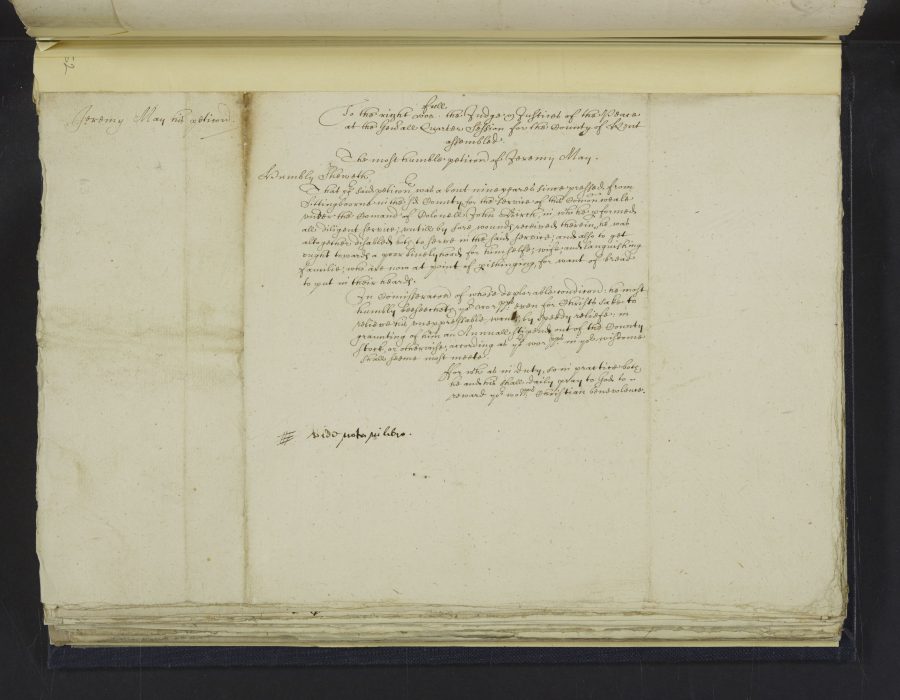 Jeremy May his peticion
To the right wor:full the Judge & Justices of the Peace
at the Gen'all Quarter Session for the County of Kent
assembled.
The most humble peticon of Jeremy May.
Humbly Sheweth
That yr said peticonr was about nine yeares since pressed from
Sittingbourne in the sd County for the service of the Comonweale
under the Comand of Colonell John in wch he pformed
all diligent service, untill by sore wounds received therein, he was
altogether disabled both to serve in the said service, and also to get
ought towards a poor livelyhood for himselfe, wife, and languishing
familie, who are now at point of pishinging, for want of bread
to put in their heads.
In Comiseracon of whose deplorable condicon: he most
humbly beseecheth yor worpps even for Christs sake to
relieve his unexpressable wants by speedy reliefe, in
graunting of him an Annuall stipend out of the County
stock, or otherwise, according as yor worpps in yor wisdome
shall seeme most meete
For wch as in duty, so in practice both
he and his shall daily pray to God to
reward yor worpps Christian benevolence.
vide nota in libro.